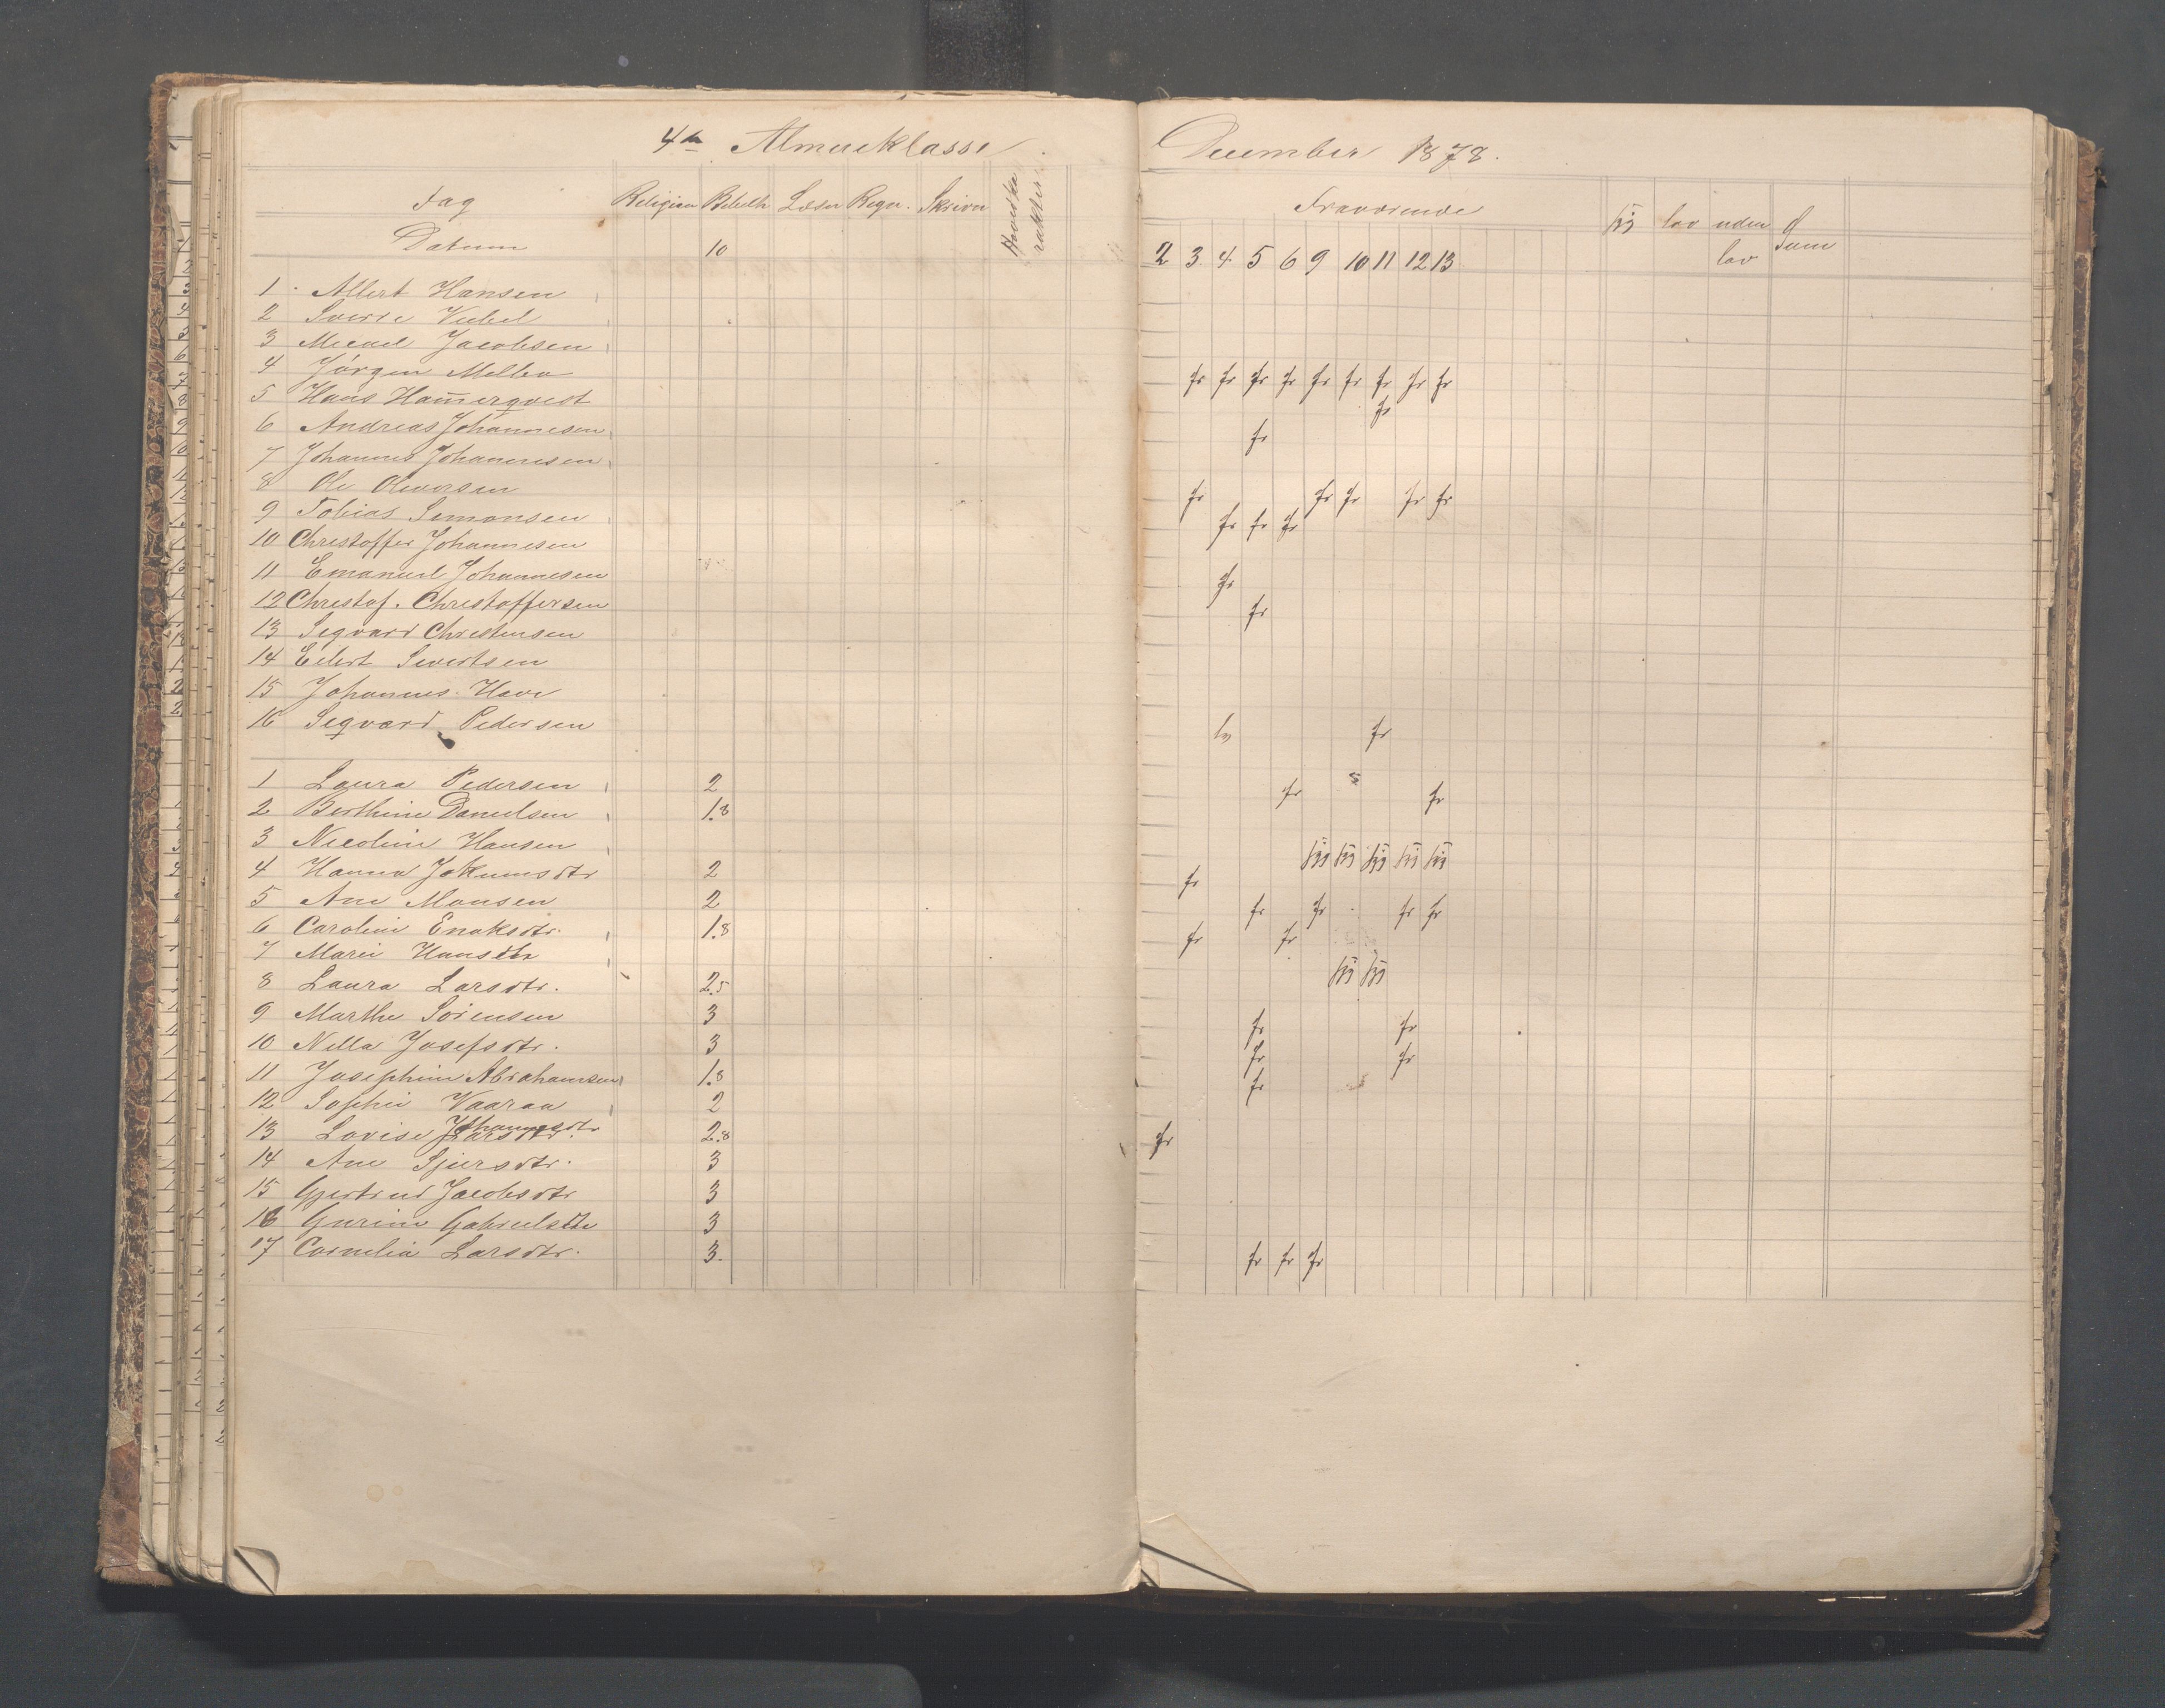 4de Almueklasse
Fag Religion Bibelh Læsn Regn. Skrivn Hovedka rakter
Datum 10
1 Albert Hansen
2 Sverre
3 Micael Jacobsen
4 Jörgen Melbo
5 Hans Ham̄erqvist
6 Andreas Johannesen
7 Johannes Johannesen
8 Ole Oleversen
9 Tobias Simonsen
10 Christoffer Johannesen
11 Emanuel Johannesen
12 Christof. Christoffersen
13 Sigvard Christensen
14 Eilert Sivertsen
15 Johannes Have
16 Sigvard Pedersen
1 Laura Pedersen 2
2 Berthine Danielsen 1.8
3 Nicoline Hansen
4 Hanna Jokumsdtr 2
5 Ane Monsen 2
6 Caroline Enoksdtr. 1.8
7 Marie Hansdtr
8 Laura Larsdtr. 2.5
9 Marthe Sörensen 3
10 Nella Josefsdtr. 3
11 Josephine Abrahamsen 1.8
12 Sophie Vaaraa 2
13 Lovise Johannesdtr 2.8
14 Ane Sjursdtr. 3
15 Gjertrud Jacobsdtr 3
16 Gurine Gabrielsdtr 3
17 Cornelia Larsdtr. 3.
December 1878.
Fraværende syg lov uden lov Sum
2 3 4 5 6 9 10 11 12 13
fr fr fr fr fr fr fr fr fr
fr
fr
fr fr fr fr fr
fr fr fr
fr
fr
lv fr
fr fr
syg syg syg syg syg
fr
fr fr fr fr
fr fr
syg syg
fr fr
fr fr
fr
fr
fr fr fr